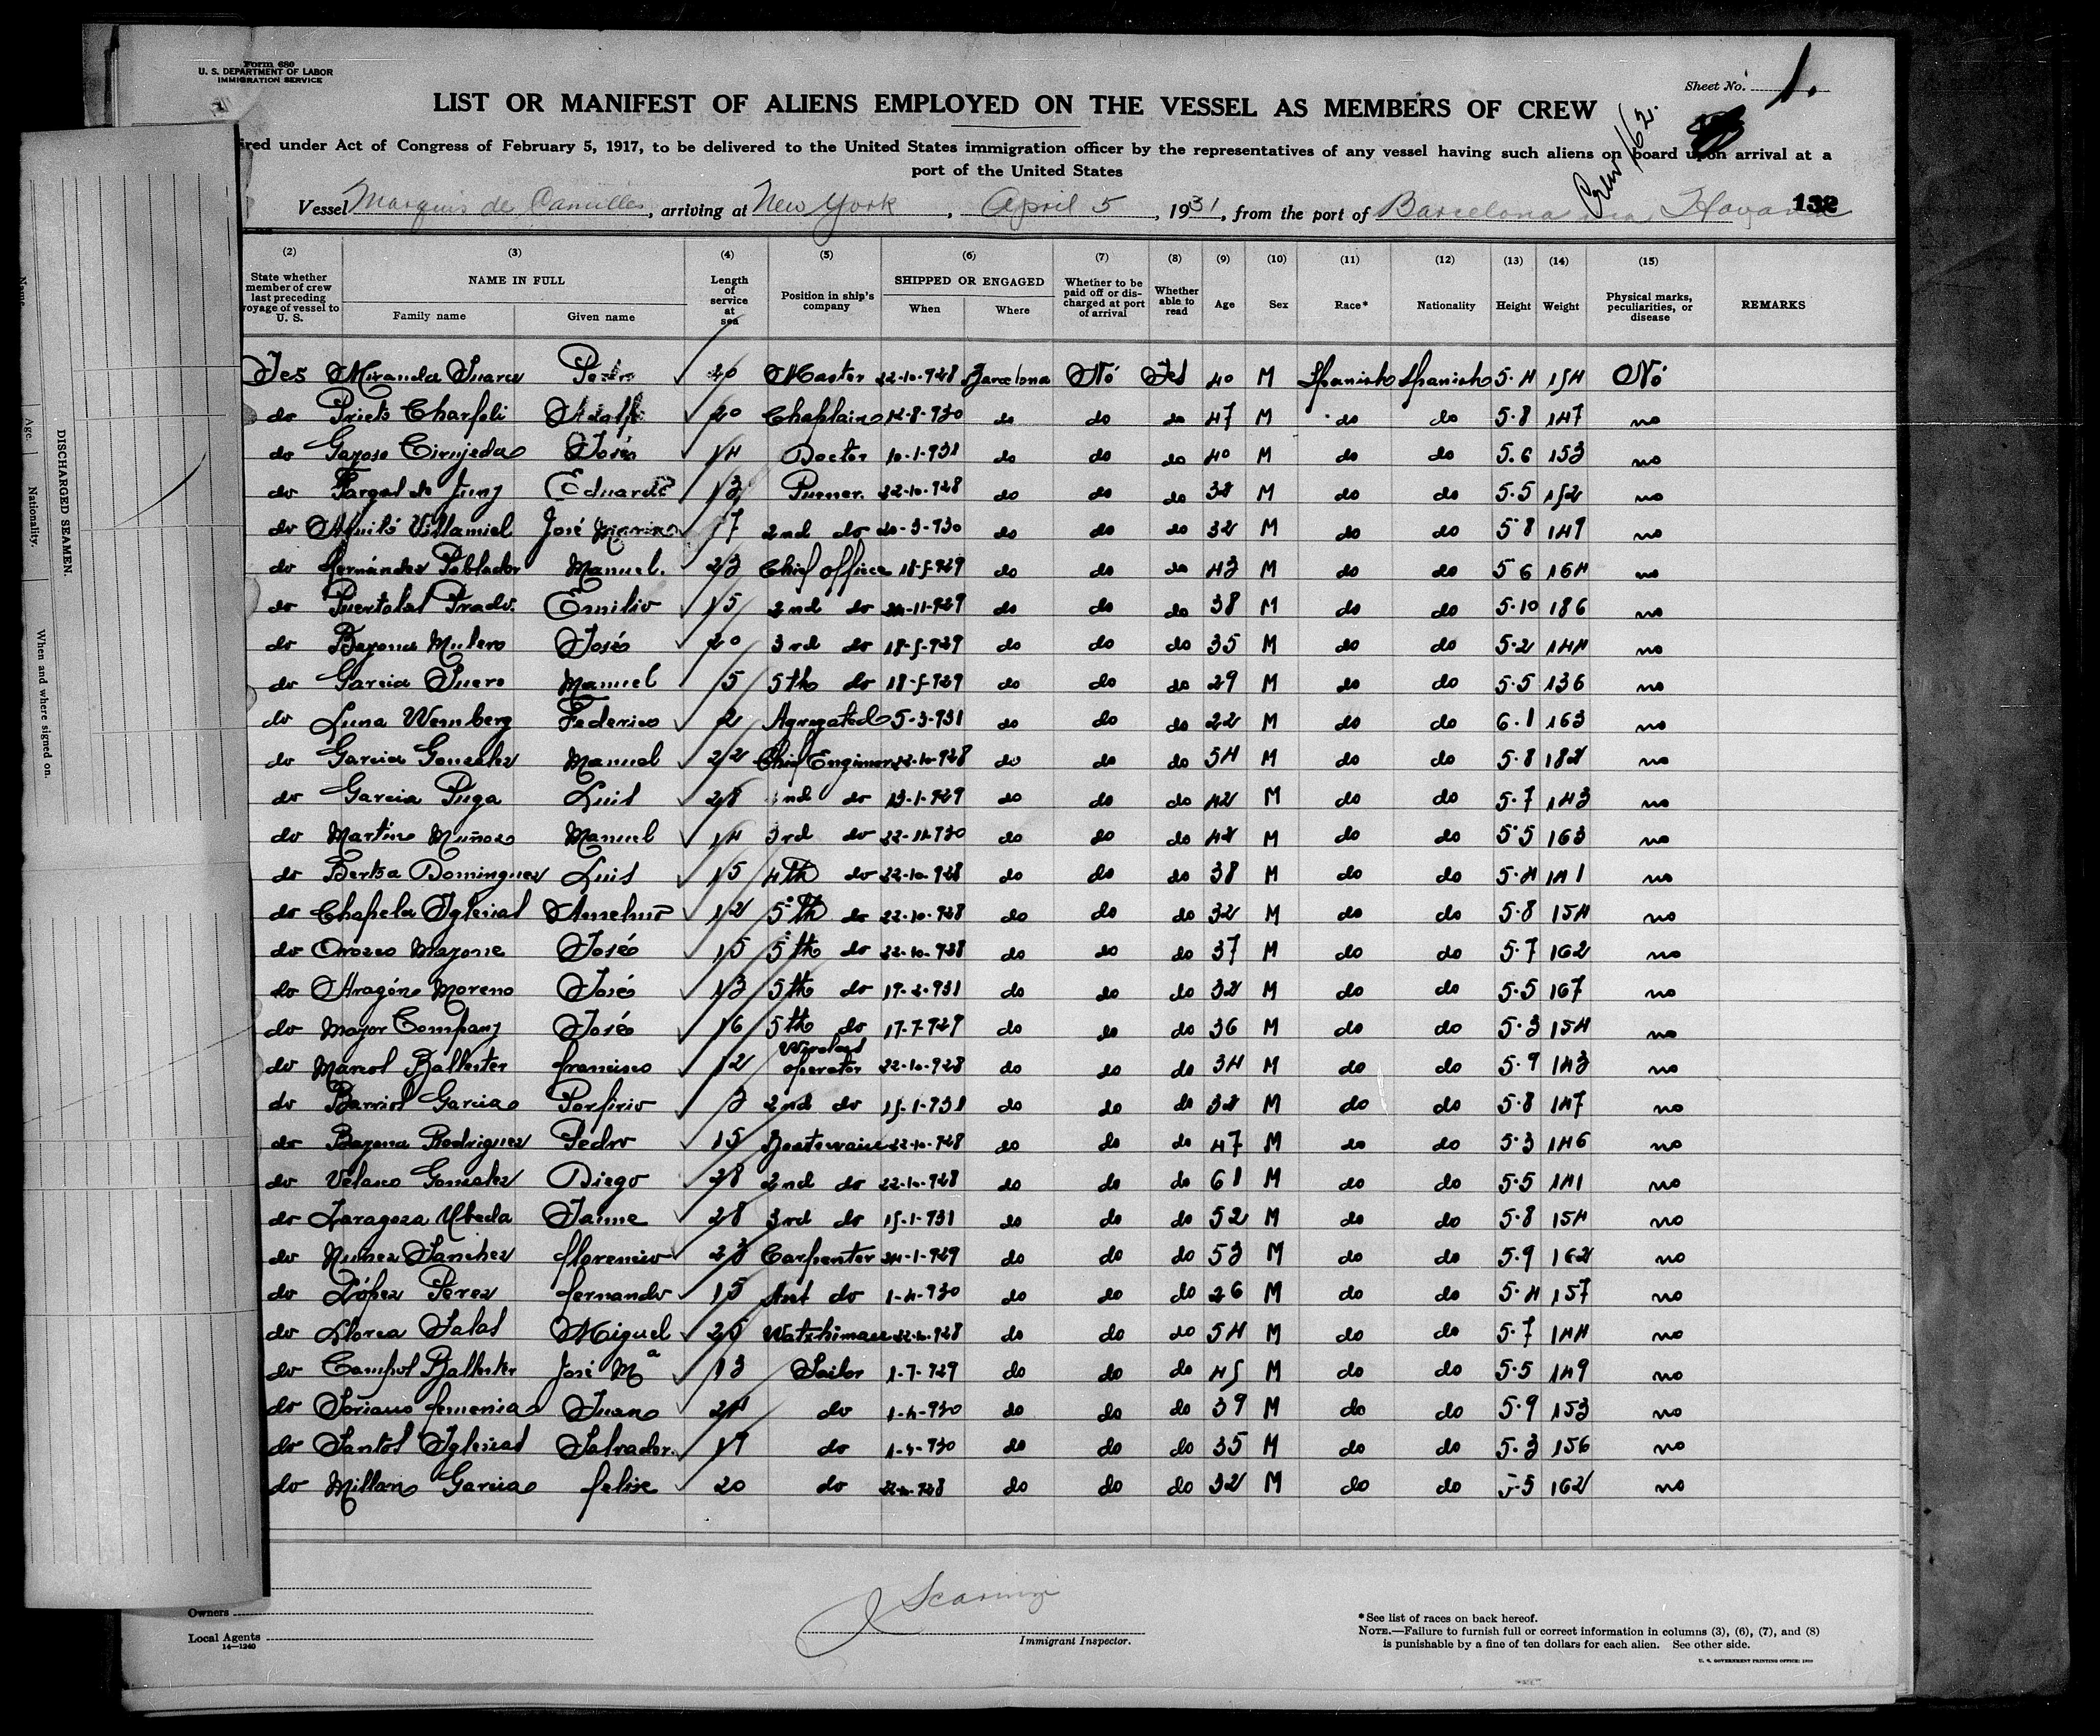 Form 680
U. S. DEPARTMENT OF LABOR
IMMIGRATION SERVICE
Sheet No. 1.
LIST OR MANIFEST OF ALIENS EMPLOYED ON THE VESSEL AS MEMBERS OF CREW
Crew 162.
ired under Act of Congress of February 5, 1917, to be delivered to the United States immigration officer by the representatives of any vessel having such aliens on board upon arrival at a
port of the United States
Vessel Marquis de Comillas, arriving at New York, April 5, 1931, from the port of Barcelona via Havana 132
(2) (3) (4) (5) (6) (7) (8) (9) (10) (11) (12) (13) (14) (15)
State whether member of crew last preceding voyage of vessel to U. S. NAME IN FULL Family name Given name Length of service at sea Position in ship's company SHIPPED OR ENGAGED When Where Whether to be paid off or discharged at port of arrival Whether able to read Age Sex Race* Nationality Height Weight Physical marks, peculiarities, or disease REMARKS
Yes Miranda Suarez Pedro 20 Master 22-10-928 Barcelona No Yes 40 M Spanish Spanish 5·4 154 No
do Prieto Adolfo 20 Chaplain 12-8-930 do do do 47 M do do 5·8 147 no
do Gayoso Cirujeda José 14 Doctor 10-1-931 do do do 40 M do do 5.6 153 no
do Eduardo 13 Purser 22-10-928 do do do 38 M do do 5.5 152 no
do Villamiel José 17 2nd do 20-3-930 do do do 32 M do do 5 8 149 no
do Hernández Poblador Manuel. 23 Chief office 18-5-929 do do do 43 M do do 5 6 164 no
do Puertolas Prado. Emilio 15 2nd do 24-11-929 do do do 38 M do do 5·10 186 no
do Bayona Mulero José 20 3rd do 18-5-929 do do do 35 M do do 5·2 144 no
do Garcia Suero Manuel 5 5th do 18-5-929 do do do 29 M do do 5·5 136 no
do Luna Wemberg Federico 2 Agregated 5-3-931 do do do 22 M do do 6·1 163 no
do Garcia Gonzalez Manuel 22 Chief Engineer 22-10-928 do do do 54 M do do 5·8 182 no
do Garcia Puga Luis 28 2nd do 13-1-929 do do do 42 M do do 5·7 143 no
do Martino Muñoz Manuel 14 3rd do 22-11-930 do do do 42 M do do 5·5 163 no
do Bertoa Dominguez Luis 15 4th do 22-10-928 do do do 38 M do do 5·4 141 no
do Chapela Iglesias 12 5th do 22-10-928 do do do 32 M do do 5·8 154 no
do Orozco José 15 5th do 22-10-928 do do do 37 M do do 5·7 162 no
do Aragón Moreno José 13 5th do 19-2-931 do do do 32 M do do 5·5 167 no
do Mayor Company José 16 5th do 17-7-929 do do do 36 M do do 5·3 154 no
do Marcos Ballester francisco 12 Wireless operator 22-10-928 do do do 34 M do do 5·9 143 no
do Barrios Garcia Porfirio 3 2nd do 15-1-931 do do do 32 M do do 5·8 147 no
do Bayona Rodriguez Pedro 15 Boatswain 22-10-928 do do do 47 M do do 5·3 146 no
do Velasco Gonzalez Diego 28 2nd do 22-10-928 do do do 61 M do do 5·5 141 no
do Zaragoza Ubeda Jaime 28 3rd do 15-1-931 do do do 52 M do do 5·8 154 no
do Nuñez Sanchez florencio 23 Carpenter 24-1-929 do do do 53 M do do 5·9 162 no
do López Perez fernando 15 Ast do 1-4-930 do do do 26 M do do 5·4 157 no
do Llorca Salas Miguel 25 Watchman 22-10-928 do do do 54 M do do 5·7 144 no
do Campos Ballester José Mª 13 Sailor 1-7-929 do do do 45 M do do 5·5 149 no
do Soriano femenia Juan 24 do 1-4-930 do do do 39 M do do 5·9 153 no
do Santos Iglesias Salvador. 19 do 1-4-930 do do do 35 M do do 5·3 156 no
do Millan Garcia felix 20 do 22-10-928 do do do 32 M do do 5·5 162 no
Owners
Local Agents
14—1240
Immigrant Inspector.
*See list of races on back hereof.
NOTE.—Failure to furnish full or correct information in columns (3), (6), (7), and (8)
is punishable by a fine of ten dollars for each alien. See other side.
U. S. GOVERNMENT PRINTING OFFICE:
DISCHARGED SEAMEN.
Name
Age.
Nationality.
When and where signed on.